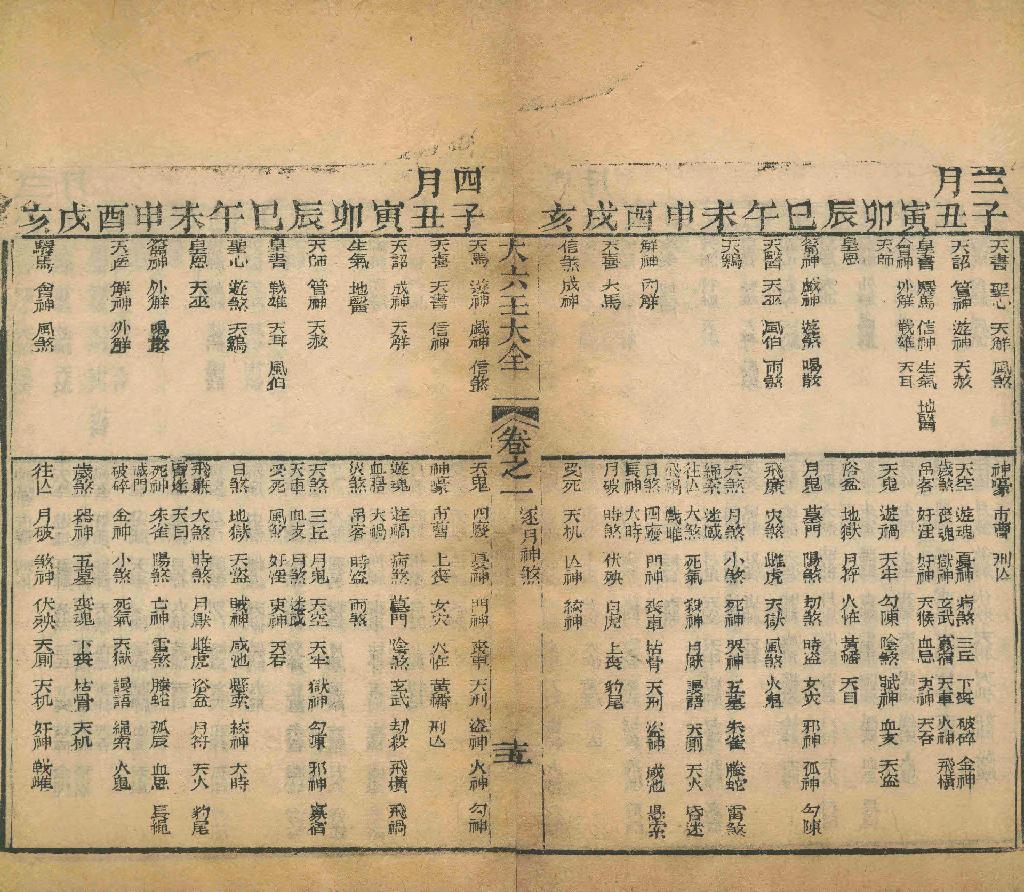 三月
子丑寅卯辰巳午未申酉戌亥
天書 聖心 天解 風煞
天詔 管神 遊神 天赦
皇書 驛馬 信神 生氣 地醫
會神 外解 戰雄 天耳
天師
皇恩
戲神 遊煞 喝散
天醫 天巫 風伯 雨煞
天鷄
解神 內解
天喜 天馬
信煞 成神
神豪 市曹 刑亡
天空 遊魂 夏神 病煞 三丘 下喪 破碎 金神
歲煞 喪魂 獄神 玄武 寡宿 天車 火神 飛橫
吊客 奸淫 奸神 天候 血忌
天鬼 遊禍 天牢 勾陳 陰煞 賊神 血支 天盜
浴盆 地獄 月符 火怪 黃旛 天目
月鬼 墓門 陽煞 劫煞 時盜 女災 邪神 孤神 勾陳
飛廉 災煞 雌虎 天獄 風煞 火鬼
天煞 月煞 小煞 死神 哭神 五墓 朱雀 螣蛇 雷煞
往亡 大煞 死氣 殺神 月厭 謾語 天厠 天火 昏迷
日煞 四廢 門神 喪車 枯骨 天刑 盜神 咸池 懸索
長神 大時
月破 時煞 伏殃 白虎 上喪 豹尾
受死 天机 亡神 絞神
大六壬大全 卷之一 逐月神煞 十五
四月
子丑寅卯辰巳午未申酉戌亥
天馬 遊神 戲神 信煞
天喜 天書 信神
天詔 成神 天解
生氣 地醫
天師 管神 天赦
皇書 戰雄 天耳 風伯
聖心 遊煞 天鷄
皇恩 天巫
外解 喝散
天醫 解神 外解
驛馬 會神 風煞
天鬼 四廢 夏神 門神 喪車 天刑 盜神 火神 勾神
神豪 市曹 上喪 女災 火怪 黃旛 刑亡
遊魂 遊禍 病煞 墓門 陰煞 玄武 劫殺 飛橫 飛禍
血忌 天禍
災煞 吊客 時盜 雨煞
天煞 三丘 月鬼 天空 天牢 獄神 勾陳 邪神 寡宿
天車 血支 月煞 迷惑
受死 風煞 奸淫 東神 天石
日煞 地獄 天盜 賊神 咸池 懸索 絞神 大時
飛廉 大煞 時煞 月厭 雌虎 浴盆 月符 天火 豹尾
天目
死神 朱雀 陽煞 亡神 雷煞 螣蛇 孤辰 血忌 長繩
破碎 金神 小煞 死氣 天獄 謾語 繩索 火鬼
歲煞 哭神 五墓 喪魂 下喪 枯骨 天机
往亡 月破 煞神 伏殃 天厠 天机 奸神 戰雌